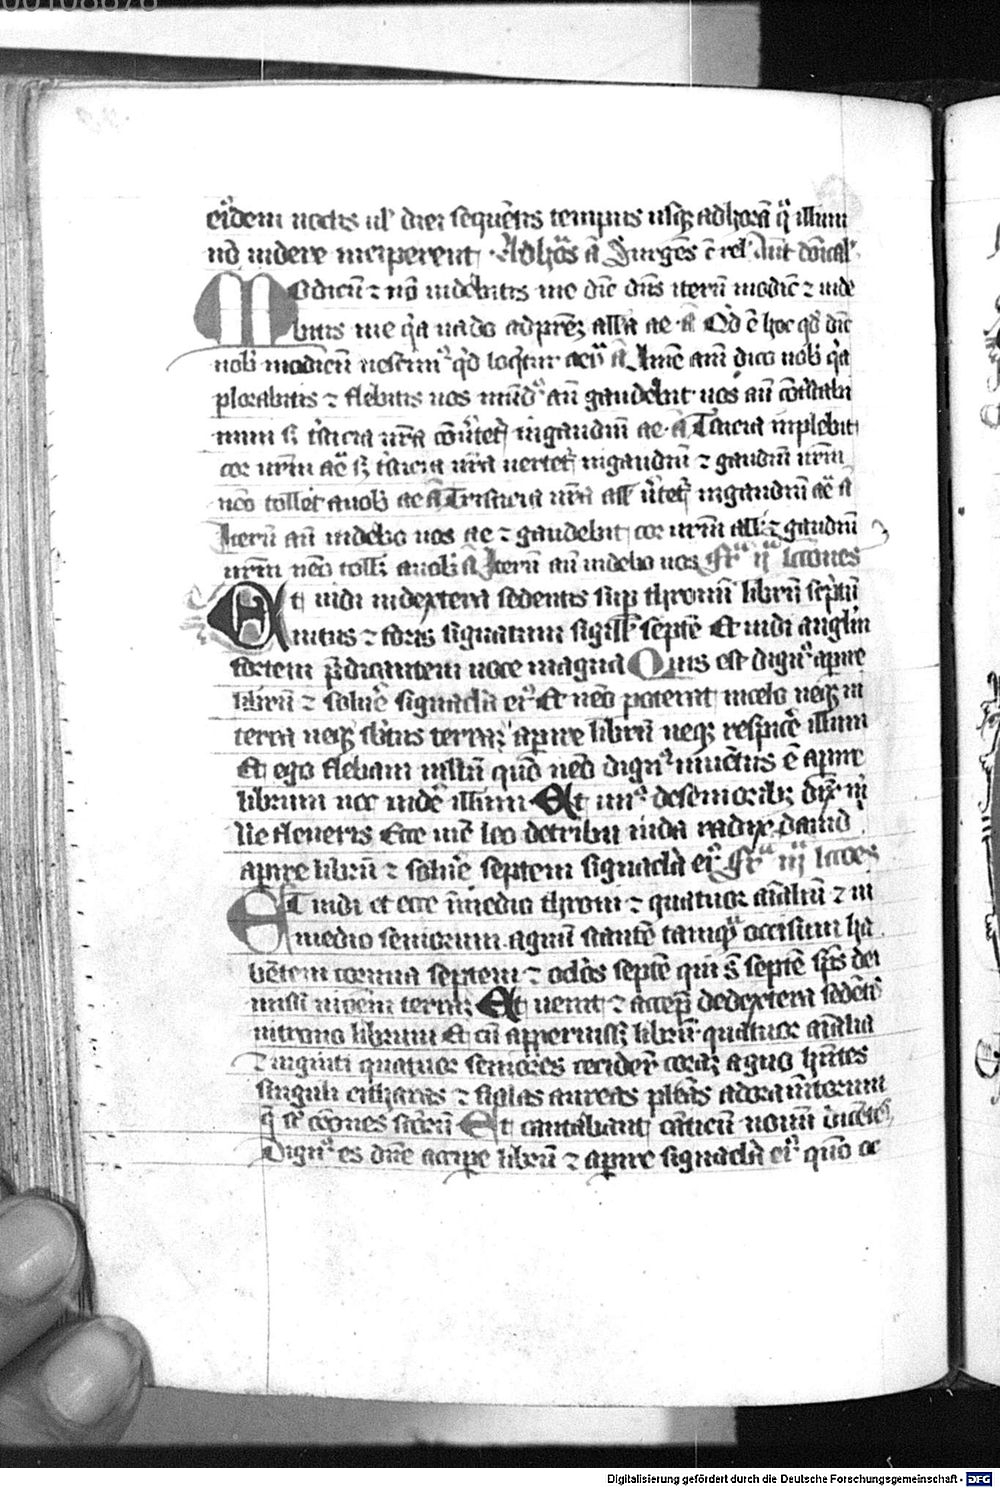 00108878
eiꝰdem noctis ul' diei sequētis tempus usqꝫ ad horā qͣ illum
nō videre inciperent Ad hoꝛas ā Surgēs ē rel' Ant dōical'
Modicū ⁊ nō videbitis me dic̄ dn̄s iterū modic̄ ⁊ vide
bitis me qꝛ vado ad prēꝫ all'a ae ā Qd̄ ē hoc qd̄ dic̄
nob' modicū nescimꝰ qd̄ loqͥtur ā Amē am̄ dico vob' qꝛ
plorabitis ⁊ flebitis vos mūdꝰ aū gaudebit vos aū cōtristabi
mini sꝫ tͥsticia vr̄a cōuͥtet' in gaudiū ae ā Tͥsticia implebit
cor vr̄m sꝫ tͥsticia vr̄a vertet' in gaudiū ⁊ gaudiū vr̄m
nēo tollet a vob' ae ā Tristicia vr̄a all' uͥtet' in gaudiū ae ā
Iterū aū videbo vos ae ⁊ gaudebit cor vr̄m all' ⁊ gaudiū
vr̄m nēo toll' a vob' ā Iterū aū videbo vos frͣ ijͣ lcōnes
Et vidi in dextera sedentis sup thronū librū scptū
intus ⁊ foris signatum sigill' septē Et vidi anglm
fortem p̄dicantem voce magna Quis est dignꝰ apire
librū ⁊ soluͥe signacl'a eiꝰ Et nēo poterat in celo neqꝫ in
terra neqꝫ sbtus terraꝫ apire librū neqꝫ respicͥe illum
Et ego flebam multū quō nēo dignꝰ inuētus ē apire
librum nec vidͤe illum Et unꝰ de seniorib' dix' mͥ
Ne fleueris Ecce vic̄ leo de tribu iuda radix dauid
apire librū ⁊ soluͥe septem signacl'a eiꝰ frͣ iijͣ lcōes
Et vidi et ecce ī medio throni ⁊ quatuor aīaliū ⁊ in
medio seniorum agnū stantē tamqͣ occisum ha
bētem cornua septem ⁊ oclōs septē qui s̄ septē sp̄s dei
missi in oēm terraꝫ Et venit ⁊ accep' de dextera sedētꝭ
in trono librum Et cū apperuissꝫ librū quatuor aīalia
⁊ viginti quatuor seniores ceciderͭ coraꝫ agno hn̄tes
singuli citharas ⁊ fialas aureas plēas adoramētorum
q̄ st̄ orōnes scōrū Et cantabant cāticū nouū dicētes
Dignꝰ es dn̄e accipe librū ⁊ apire signacl'a eiꝰ quō oc
Digitalisierung gefördert durch die Deutsche Forschungsgemeinschaft - DFG